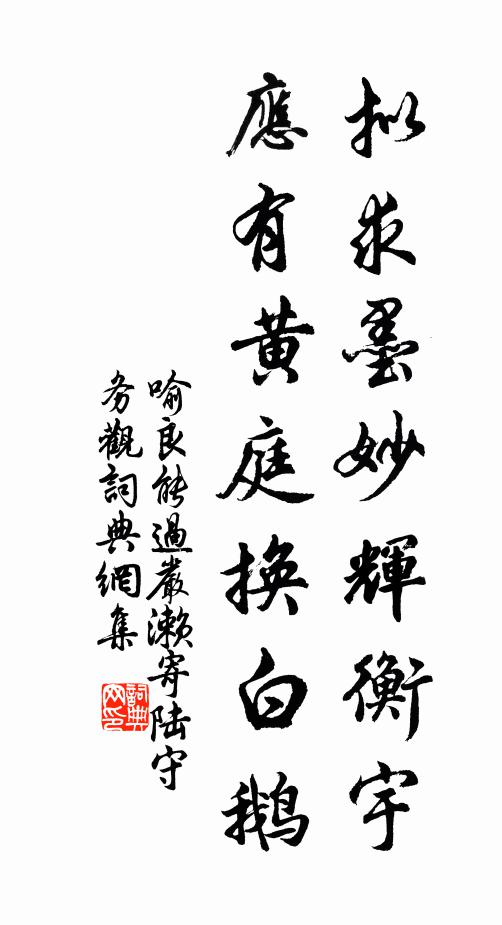 拟求墨妙輝衡宇
應有黄庭換白鹅
喻良能過嚴濑寄陆守
务觀詞典網集
詞典
网印